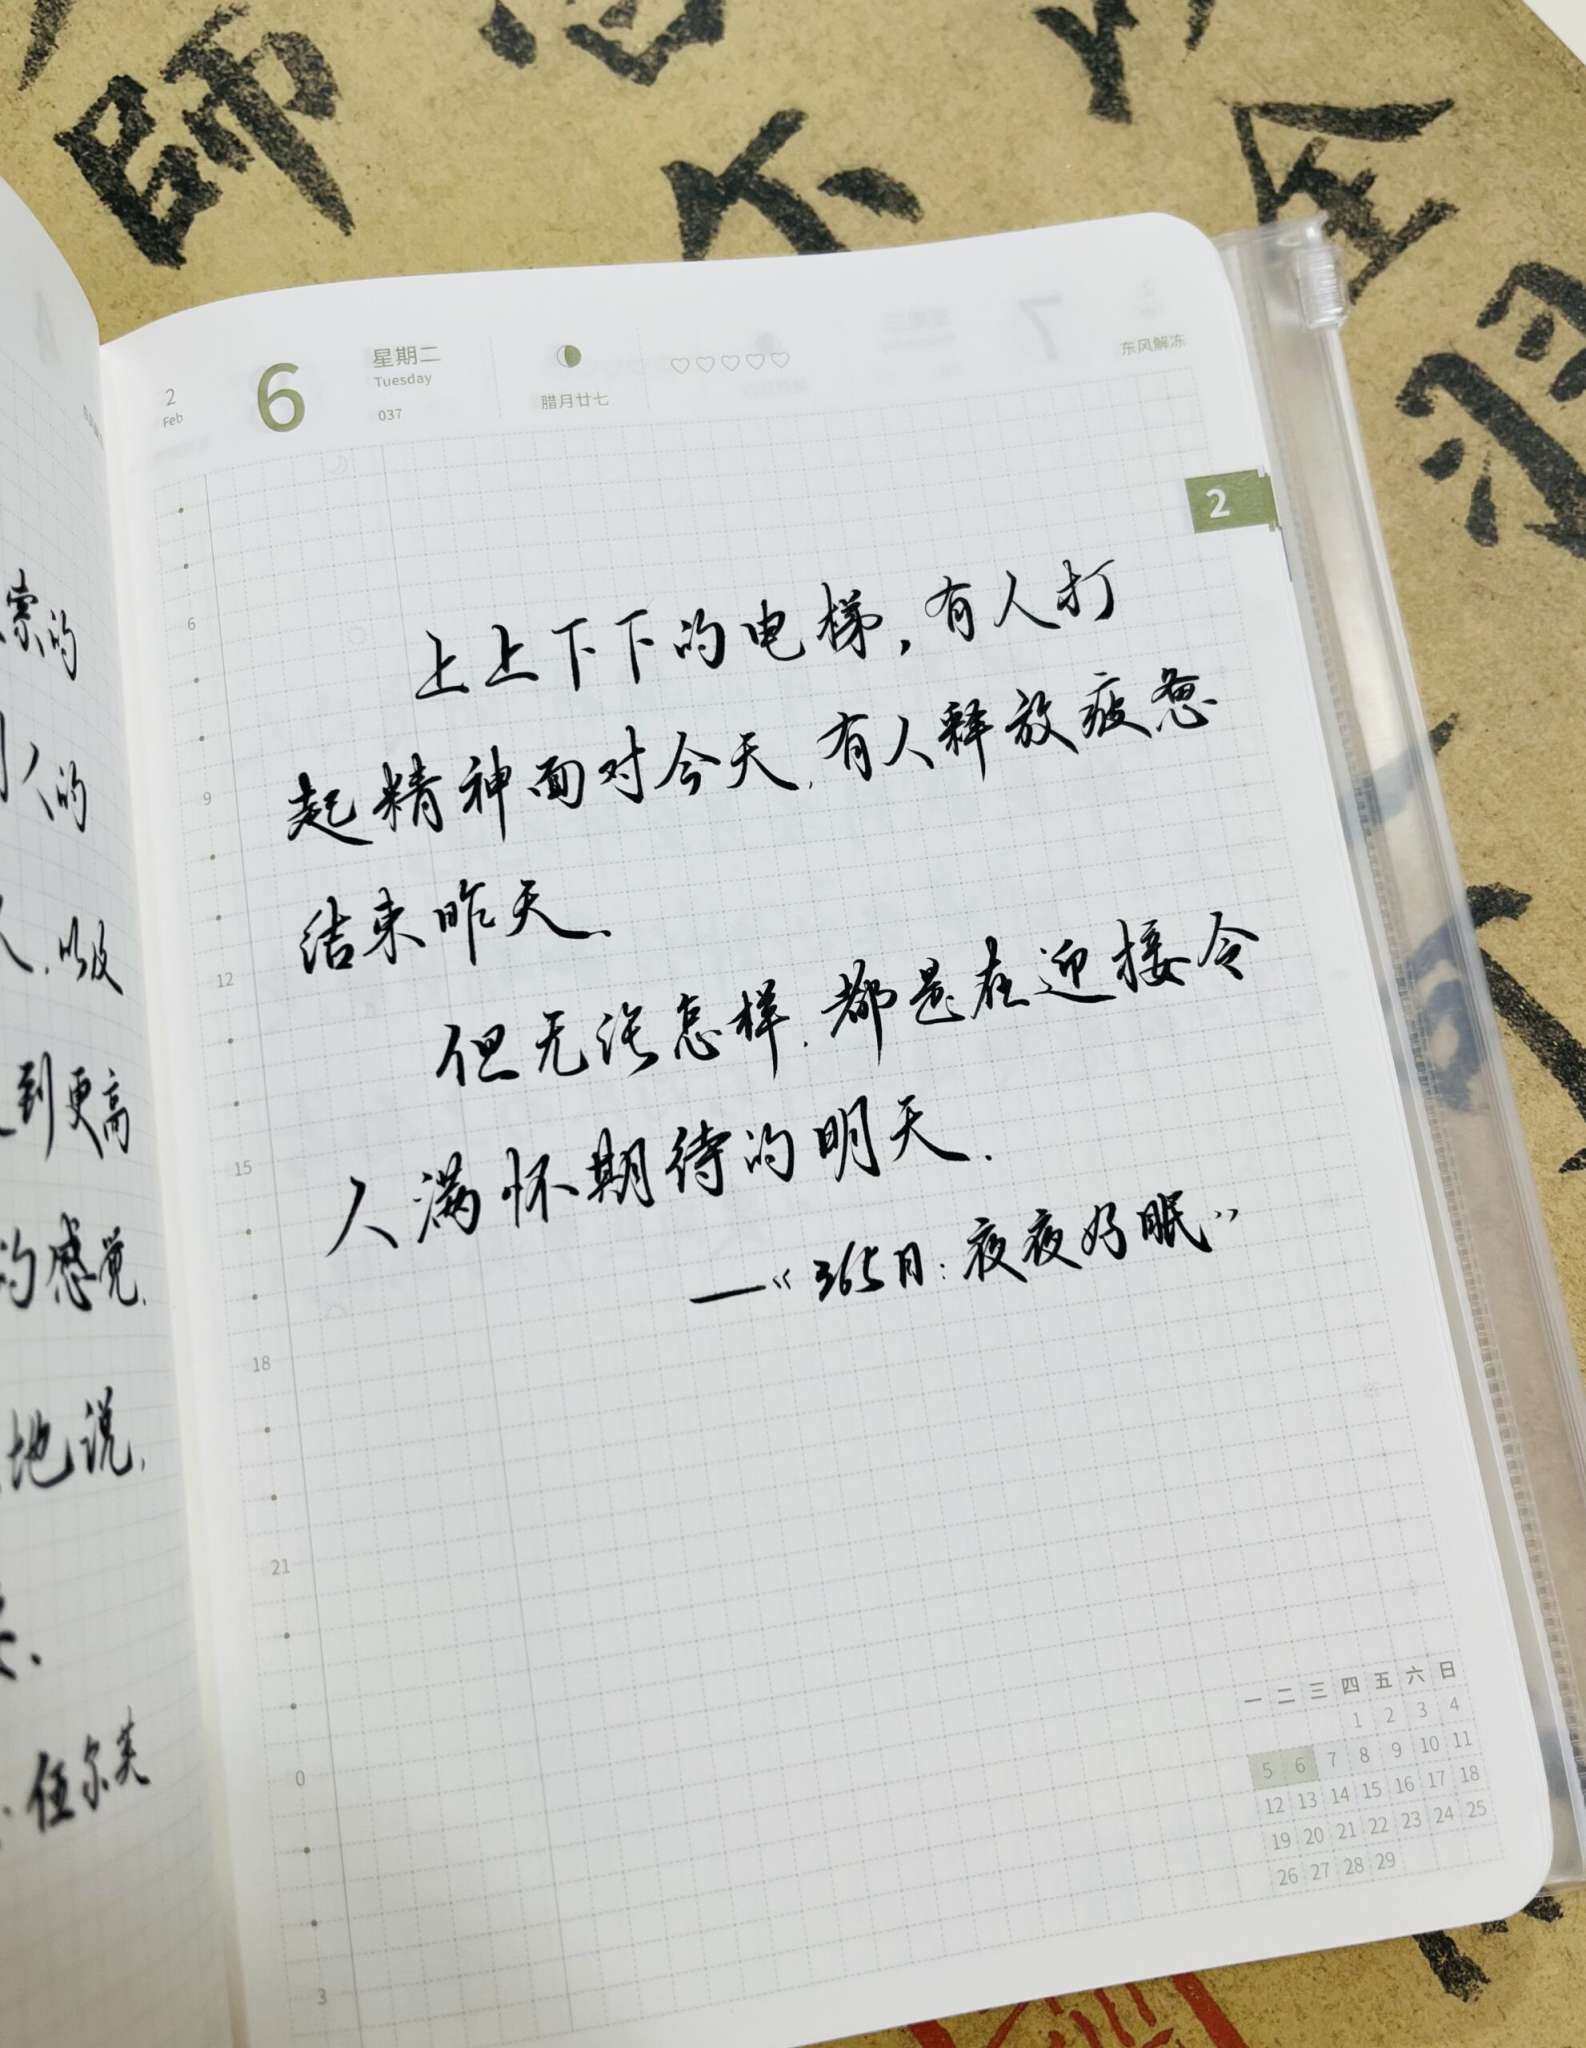 師
不
全
2
Feb
6
星期二
Tuesday
037
腊月廿七
♡♡♡♡♡
东风解冻
2
上上下下的电梯，有人打
起精神面对今天，有人释放疲惫
结束昨天.
但无论怎样.都是在迎接令
人满怀期待的明天.
——《365日：夜夜好眠》
6
9
12
15
18
21
0
3
一 二 三 四 五 六 日
1 2 3 4
5 6 7 8 9 10 11
12 13 14 15 16 17 18
19 20 21 22 23 24 25
26 27 28 29
索的
人的
.以及
到更高
的感觉.
地说.
伍尔芙